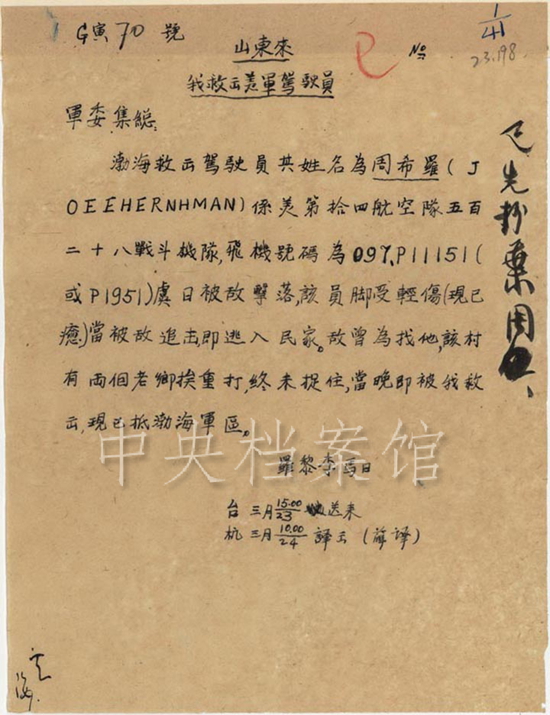 G寅70號
1/41
23.198
山東來
No
我救出美軍駕駛員
軍委、集総、
渤海救出駕駛員其姓名為周希羅(J
OEEHERNHMAN)係美第拾四航空隊五百
二十八戰斗機隊,飛機號碼為097,P11151(
或P1951)虞日被敌擊落,該員脚受輕傷(現已
癒)當被敌追击,即逃入民家。敌曾為找他,該村
有両個老鄉挨重打,終未捉住,當晚即被我救
出,現已抵渤海軍區。
羅黎李馬日
台三月15.00/23 送来
杭三月10.00/24 譯出(薛譯)
中央档案馆